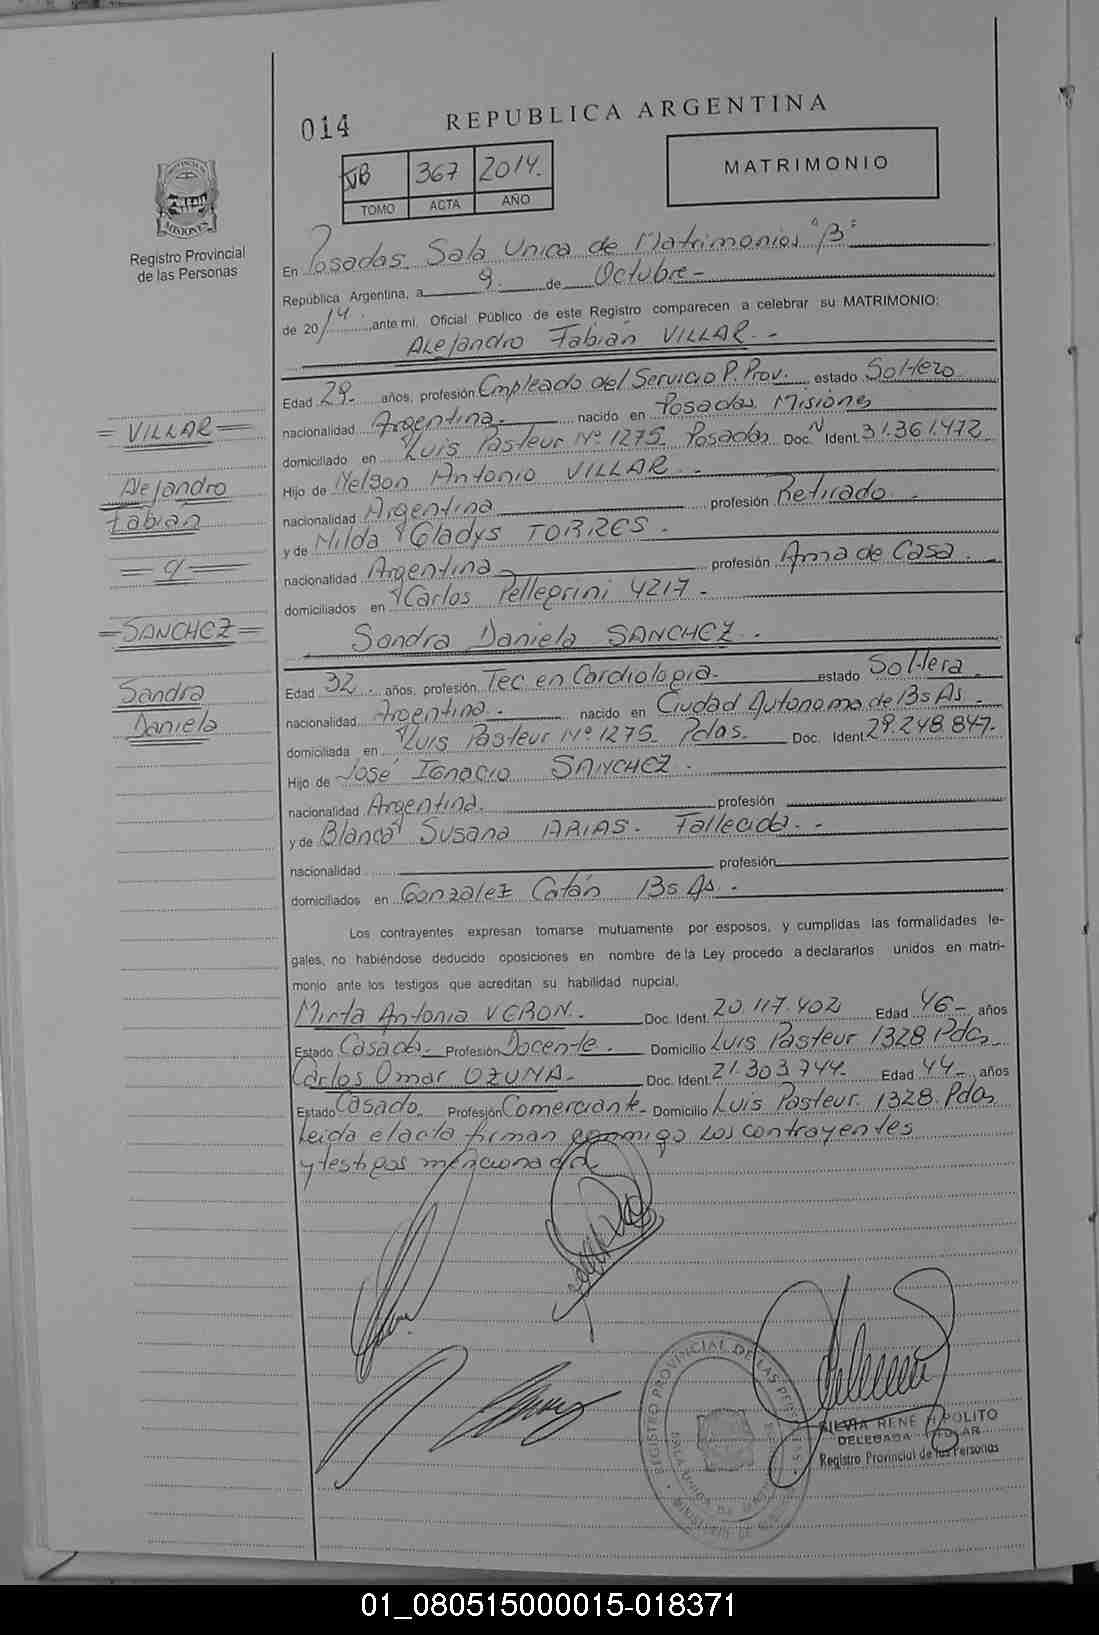 014
REPUBLICA ARGENTINA
MATRIMONIO
367 2014.
TOMO ACTA AÑO
Registro Provincial
de las Personas
En Posadas. Sala Unica de Matrimonios "B"
República Argentina, a 9 de Octubre -
de 2014. ante mi, Oficial Público de este Registro comparecen a celebrar su MATRIMONIO:
Alejandro Fabián VILLAR. -
Edad 29- años, profesión Empleado del Servicio P. Prov. estado Soltero
nacionalidad Argentina. nacido en Posadas Misiones
domiciliado en Luis Pasteur Nº 1275 Posadas Doc. Nº Ident. 31.361.472
Hijo de Nelson Antonio VILLAR. -
nacionalidad Argentina profesión Retirado. -
y de Milda Gladys TORRES. -
nacionalidad Argentina profesión Ama de Casa. -
domiciliados en Carlos Pellegrini 4217. -
Sandra Daniela SANCHEZ. -
Edad 32. años, profesión Tec en Cardiologia. estado Soltera
nacionalidad Argentina. - nacido en Ciudad Autonoma de Bs As. -
domiciliada en Luis Pasteur Nº 1275. Pdas. Doc. Ident. 29.248.847.
Hijo de José Ignacio SANCHEZ. -
nacionalidad Argentina. profesión
y de Blanca Susana ARIAS. Fallecida. -
nacionalidad profesión
domiciliados en Gonzalez Catán Bs As. -
Los contrayentes expresan tomarse mutuamente por esposos, y cumplidas las formalidades le-
gales, no habiéndose deducido oposiciones en nombre de la Ley procedo a declararlos unidos en matri-
monio ante los testigos que acreditan su habilidad nupcial.
Mirta Antonia VERON. Doc. Ident. 20.117.402 Edad 46- años
Estado Casada. Profesión Docente. - Domicilio Luis Pasteur 1328 Pdas
Carlos Omar OZUNA. Doc. Ident. 21.303.744. Edad 44- años
Estado Casado. Profesión Comerciante- Domicilio Luis Pasteur. 1328. Pdas
Leida el acta firman conmigo los contrayentes
y testigos mencionados
= VILLAR =
Alejandro
Fabián
= y =
= SANCHEZ =
Sandra
Daniela
REGISTRO PROVINCIAL DE LAS PERSONAS
SILVIA RENE HIPOLITO
DELEGADA TITULAR
Registro Provincial de las Personas
01_080515000015-018371